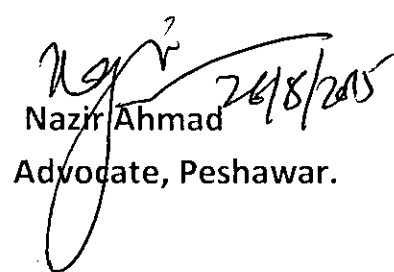 26/8/2015
Nazir Ahmad
Advocate, Peshawar.